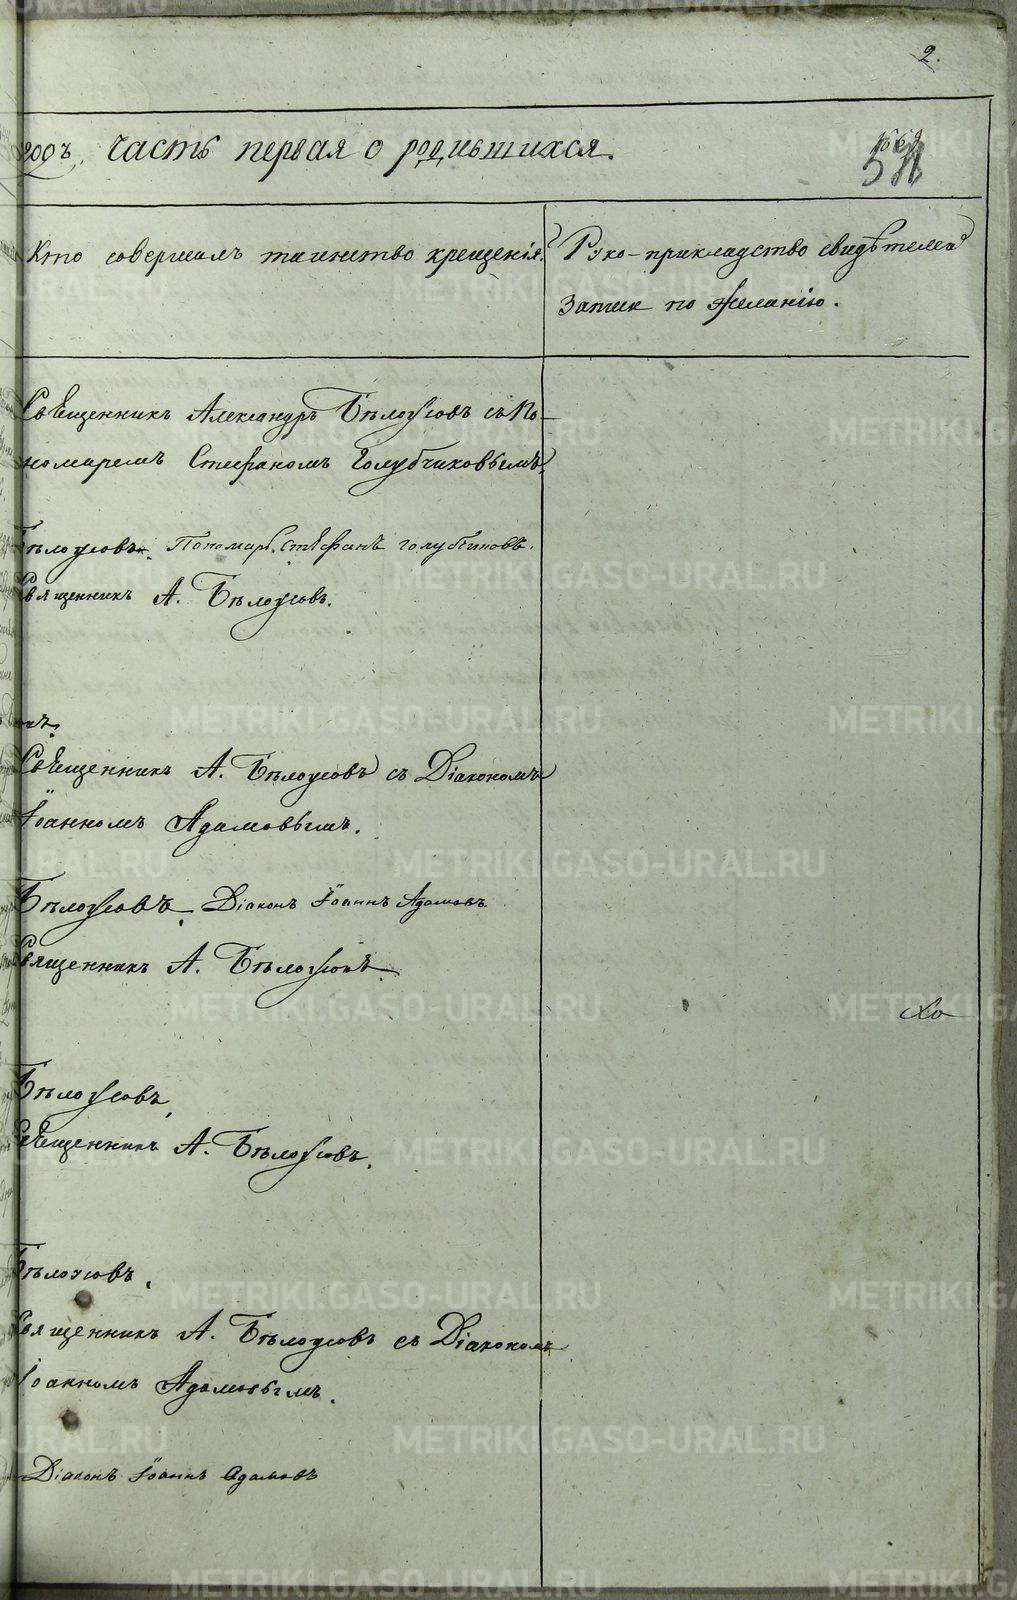 2.
годъ, Часть первая о родившихся.
Кто совершалъ таинство крещенія?
Руко-прикладство свидѣтелей
записи по желанію.
Священникъ Александръ Бѣлоусовъ съ По-
номаремъ Стефаномъ Голубчиковымъ.
Бѣлоусовъ. Пономарь Стефанъ Голубчиковъ.
Священникъ А. Бѣлоусовъ.
Священникъ А. Бѣлоусовъ съ Діакономъ
Іоанномъ Адамовымъ.
Бѣлоусовъ, Діаконъ Іоаннъ Адамовъ
Священникъ А. Бѣлоусовъ.
Бѣлоусовъ,
Священникъ А. Бѣлоусовъ.
Бѣлоусовъ.
Священникъ А. Бѣлоусовъ съ Діакономъ
Іоанномъ Адамовымъ.
Діаконъ Іоаннъ Адамовъ
METRIKI.GASO-URAL.RU